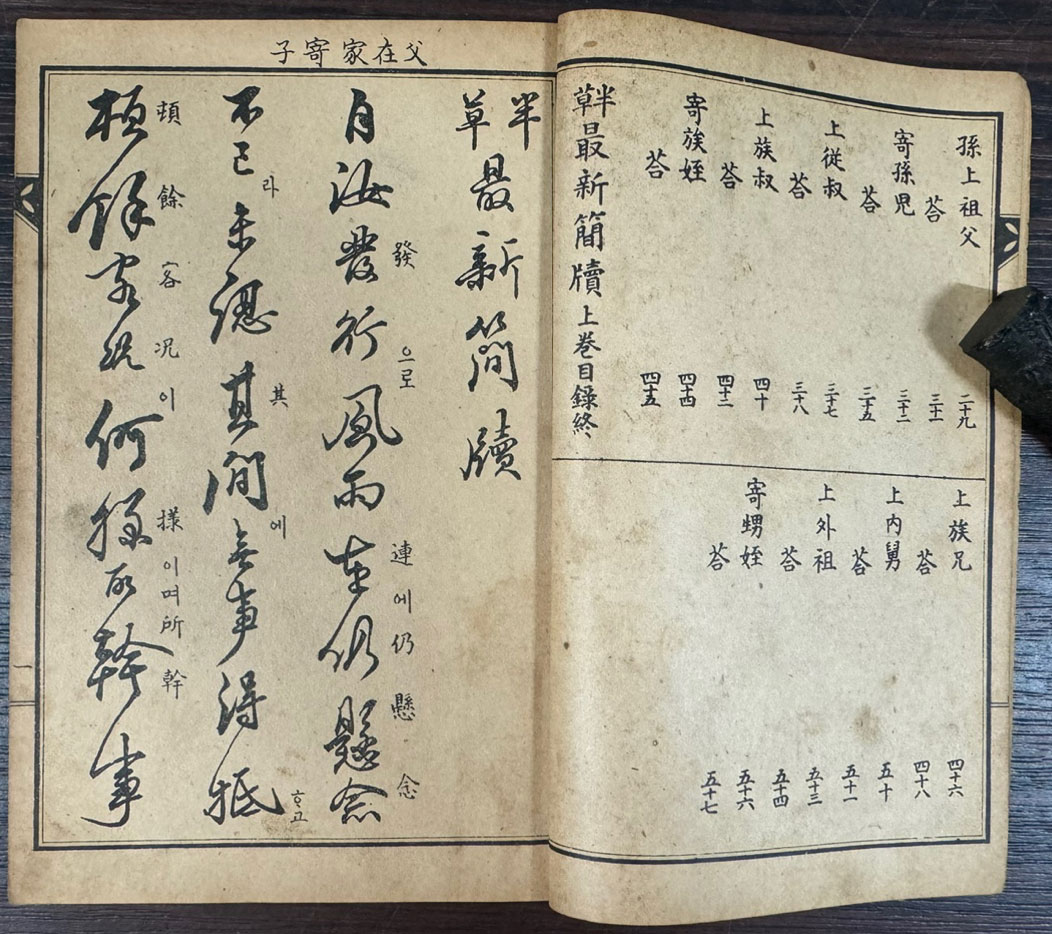 孫上祖父 二十九
荅 三十一
寄孫児 三十二
荅 三十五
上從叔 三十七
荅 三十八
上族叔 四十
荅 四十二
寄族姪 四十四
荅 四十五
半草最新簡牘上卷目錄終
上族兄 四十六
荅 四十八
上內舅 五十
荅 五十一
上外祖 五十三
荅 五十四
寄甥姪 五十六
荅 五十七
父在家寄子
半草最新簡牘
發 으로 連에仍 懸 念
自汝發行風雨連仍懸念
라 其 에 ᄒᆞ고
不已未認其間無事得抵
頓 餘 客 况 이 樣 이며所 幹
頓餘客况何樣所幹事
一